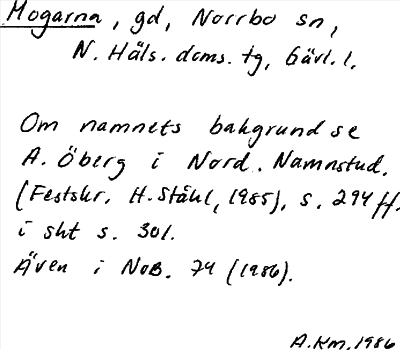 Mogarna, gd, Norrbo sn,
N. Häls. doms. tg, Gävl. l.
Om namnets bakgrund se
A. Öberg i Nord. Namnstud.
(Festskr. H. Ståhl, 1985), s. 294 ff.
i sht s. 301.
Även i NoB. 74 (1986).
A.Km. 1986